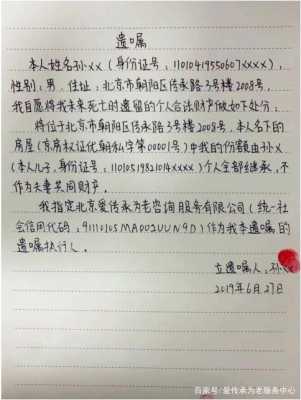 遗嘱
本人姓名孙xx(身份证号:11010419550607xxxx),
性别:男,住址:北京市朝阳区传承路3号楼2008号,
我自愿将我未来死亡的遗留的个人合法财产做如下处分:
将位于北京市朝阳区传承路3号楼2008号,本人名下的
房屋(京房权证优朝私字第00001号)中我的份额由孙x
(本人儿子,身份证号:11010519821014xxxx)个人全部继承,不
作为夫妻共同财产。
我指定北京爱传承为老咨询服务有限公司(统一社
会信用代码:91110105MA002UUN9D)作为我本遗嘱的
遗嘱执行人。
立遗嘱人:孙xx
2019年6月27日
百家号/爱传承为老服务中心